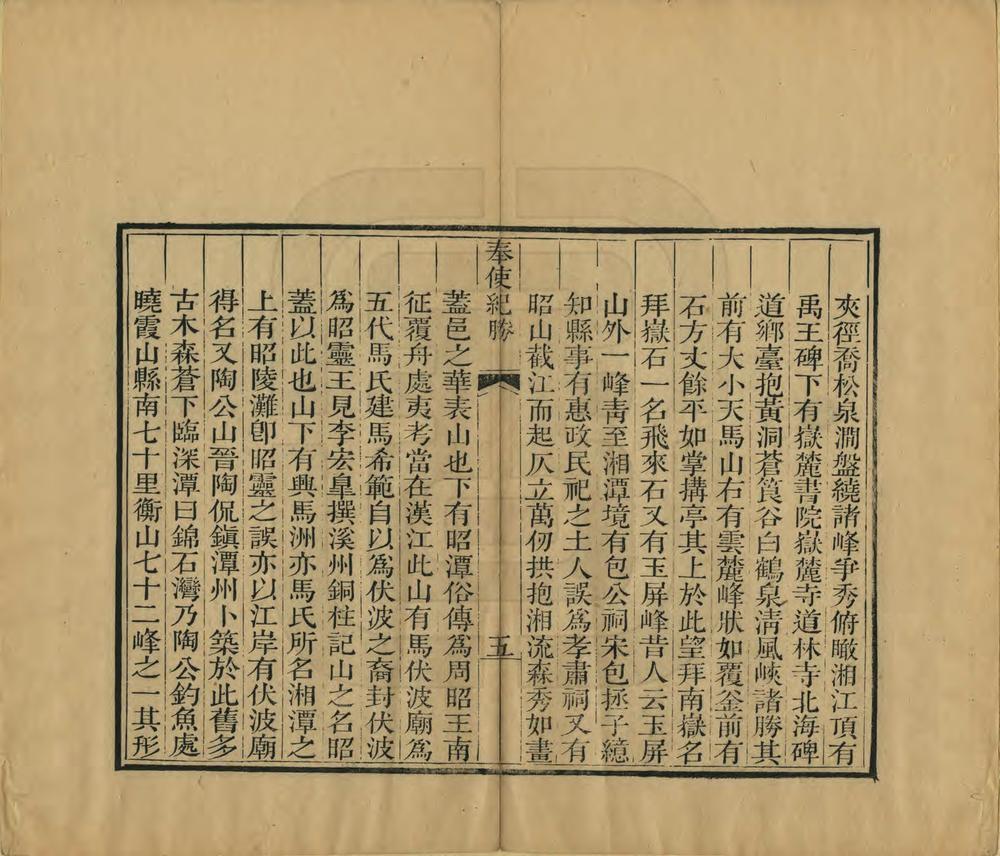 夾徑喬松泉澗盤繞諸峰爭秀俯瞰湘江頂有
禹王碑下有嶽麓書院嶽麓寺道林寺北海碑
道鄕臺抱黃洞蒼筤谷白鶴泉淸風峽諸勝其
前有大小天馬山右有雲麓峰狀如覆釜前有
石方丈餘平如掌搆亭其上於此望拜南嶽名
拜嶽石一名飛來石又有玉屏峰昔人云玉屏
山外一峰靑至湘潭境有包公祠宋包拯子繶
知縣事有惠政民祀之土人誤爲孝肅祠又有
昭山截江而起仄立萬仞拱抱湘流森秀如畫
奉使紀勝
五
蓋邑之華表山也下有昭潭俗傳爲周昭王南
征覆舟處夷考當在漢江此山有馬伏波廟爲
五代馬氏建馬希範自以爲伏波之裔封伏波
爲昭靈王見李宏臯撰溪州銅柱記山之名昭
蓋以此也山下有興馬洲亦馬氏所名湘潭之
上有昭陵灘卽昭靈之誤亦以江岸有伏波廟
得名又陶公山晉陶侃鎭潭州卜築於此舊多
古木森蒼下臨深潭曰錦石灣乃陶公釣魚處
曉霞山縣南七十里衡山七十二峰之一其形